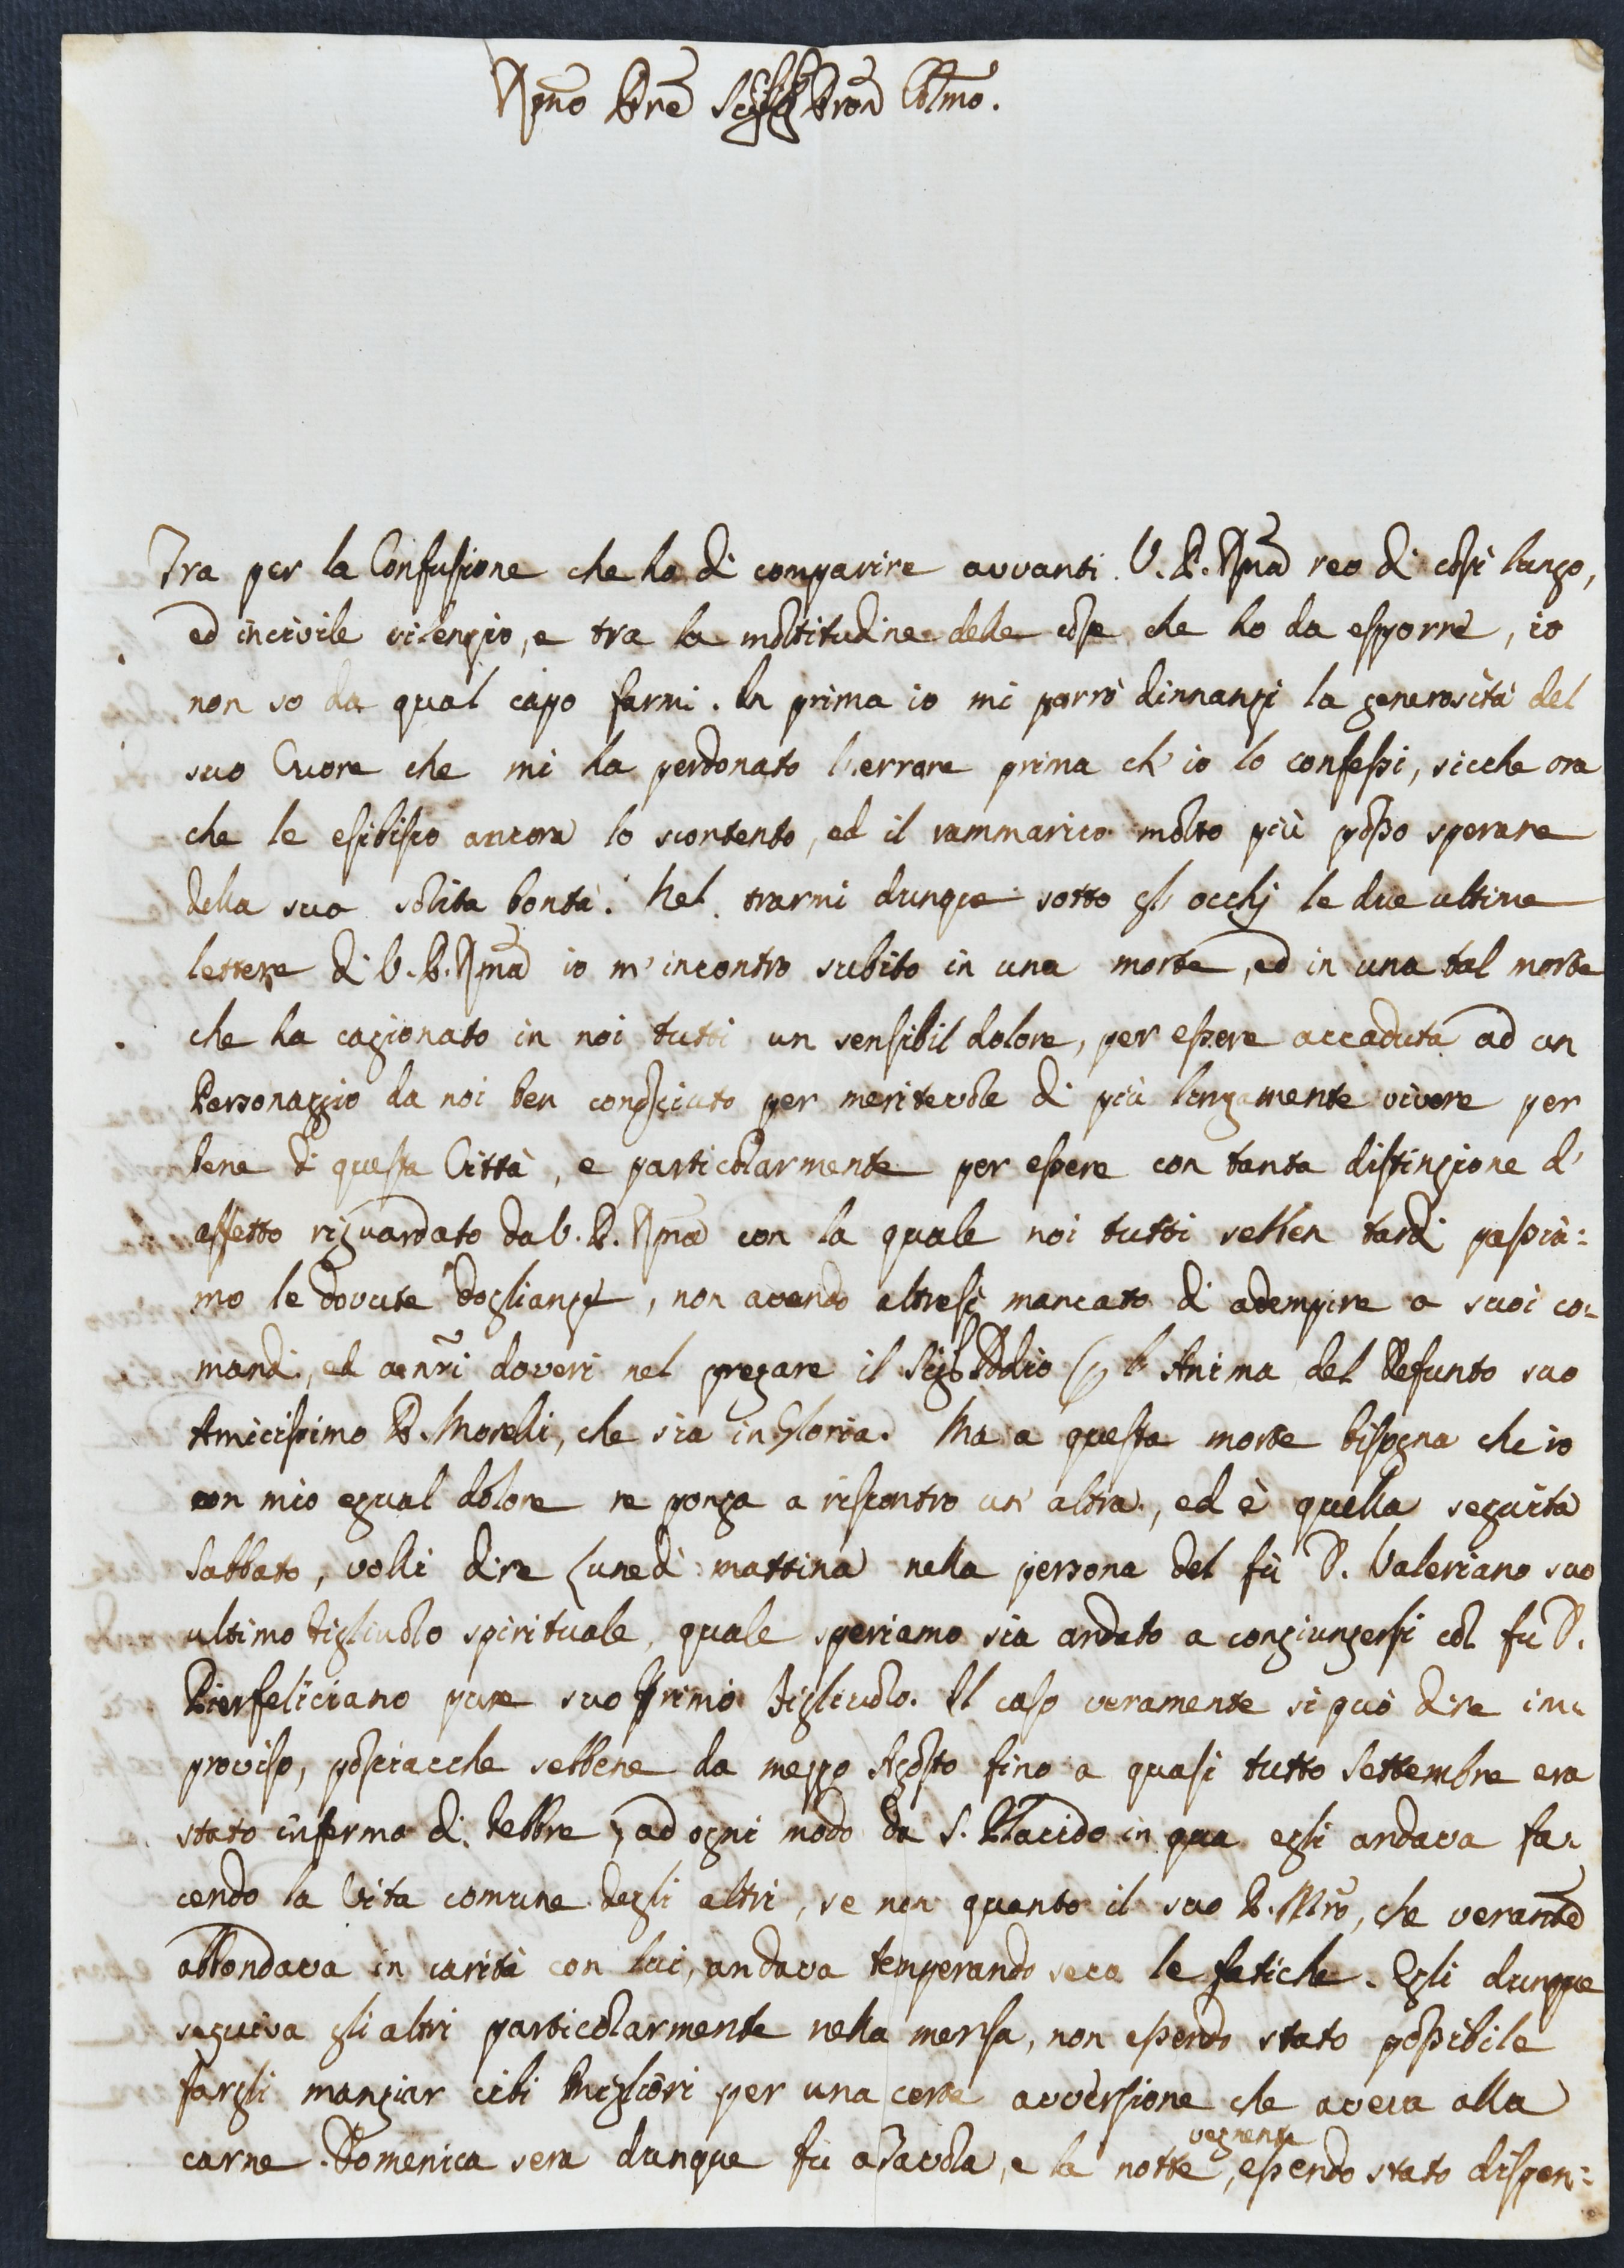 Rmo Pre Sig.r Sig.r Pron Colmo.
Tra per la Confusione che ho di comparire avvanti V. P. Rma reo di così lungo,
ed incivile silenzio, e tra la moltitudine delle cose che ho da esporre, io
non so da qual capo farmi. In prima io mi porrò dinnanzi la generosità del
suo Cuore che mi ha perdonato l'errore prima ch'io lo confessi, sicche ora
che le esibisco ancora lo scontento, ed il rammarico molto più posso sperare
della sua solita bontà. Nel trarmi dunque sotto gl'occhj le due ultime
lettere di V. P. Rma io m'incontro subito in una morte, ed in una tal morte
che ha cagionato in noi tutti un sensibil dolore, per essere accaduta ad un
Personaggio da noi ben conosciuto per meritevole di più lungamente vivere per
bene di questa Città, e particolarmente per essere con tanta distinzione d'
affetto riguardato da V. P. Rma con la quale noi tutti sebben tardi passia:
mo le dovute doglianze, non avendo altresì mancato di adempire a suoi co-
mandi, ed a nri doveri nel pregare il Sig. Iddio per l'Anima del Defunto suo
Amicissimo P. Morelli, che sia in Gloria. Ma a questa morte bisogna che io
con mio egual dolore ne ponga a riscontro un'altra, ed è quella seguita
Sabbato, volli dire Lunedì mattina nella persona del fù D. Valeriano suo
ultimo Figliuolo spirituale, quale speriamo sia andato a congiungersi col fù D.
Pierfeliciano pure suo Primo Figliuolo. Il caso veramente si può dire im-
proviso, posciacche sebbene da mezzo Agosto fino a quasi tutto Settembre era
stato infermo di febbre, ad ogni modo da S. Placido in qua egli andava fa-
cendo la Vita comune degli altri, se non quanto il suo P. Mro, che veramte
abbondava in carità con lui, andava temperando seco le fatiche. Egli dunque
seguiva gli altri particolarmente nella mensa, non essendo stato possibile
fargli mangiar cibi migliori per una certa avversione che aveva alla
carne. Domenica sera dunque fù a Tavola, e la notte vegnente, essendo stato dispen: